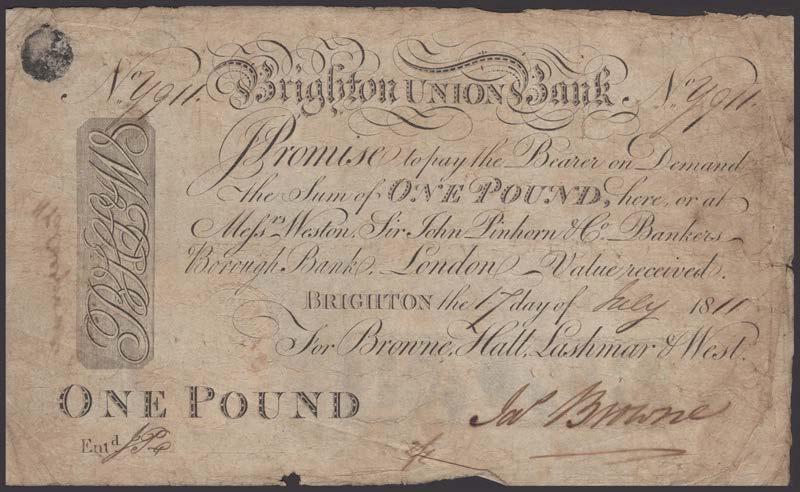 No. Y911. Brighton UNION Bank. No. Y911.
I Promise to pay the Bearer on Demand
the Sum of ONE POUND, here, or at
Messrs Weston, Sir John Pinhorn & Co. Bankers
Borough Bank, London Value received.
BRIGHTON the 17 day of July 1811
For Browne, Hall, Lashmar & West.
BHL&W
ONE POUND
Jas Browne
Entd J.P.